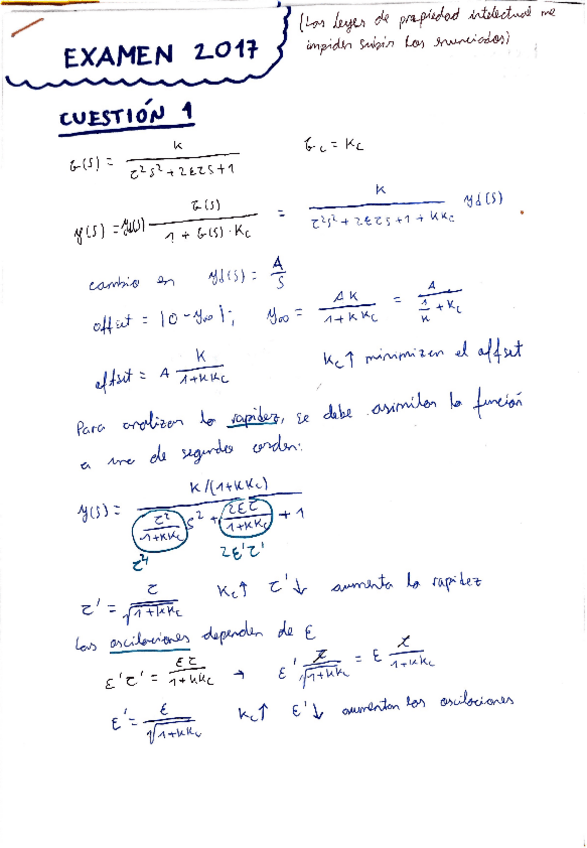 (Las leyes de propiedad intelectual me
impiden subir los enunciados)
EXAMEN 2017
CUESTIÓN 1
G(s) = K / (τ²s² + 2ετs + 1)    Gc = Kc
y(s) = yd(s) G(s) / (1 + G(s)·Kc) = K / (τ²s² + 2ετs + 1 + KKc) yd(s)
cambio en yd(s) = A/s
offset = |0 - y∞|; y∞ = AK / (1 + KKc) = A / (1/K + Kc)
offset = A K / (1 + KKc)    Kc↑ minimizan el offset
Para analizar la rapidez, se debe asimilar la función
a una de segundo orden:
y(s) = K/(1+KKc) / (τ²/(1+KKc) s² + 2ετ/(1+KKc) + 1)
τ'² 2ε'τ'
τ' = τ / √(1+KKc)    Kc↑ τ'↓ aumenta la rapidez
Las oscilaciones dependen de ε
ε'τ' = ετ / (1+KKc) → ε' τ / √(1+KKc) = ε τ / (1+KKc)
ε' = ε / √(1+KKc)    Kc↑ ε'↓ aumentan las oscilaciones